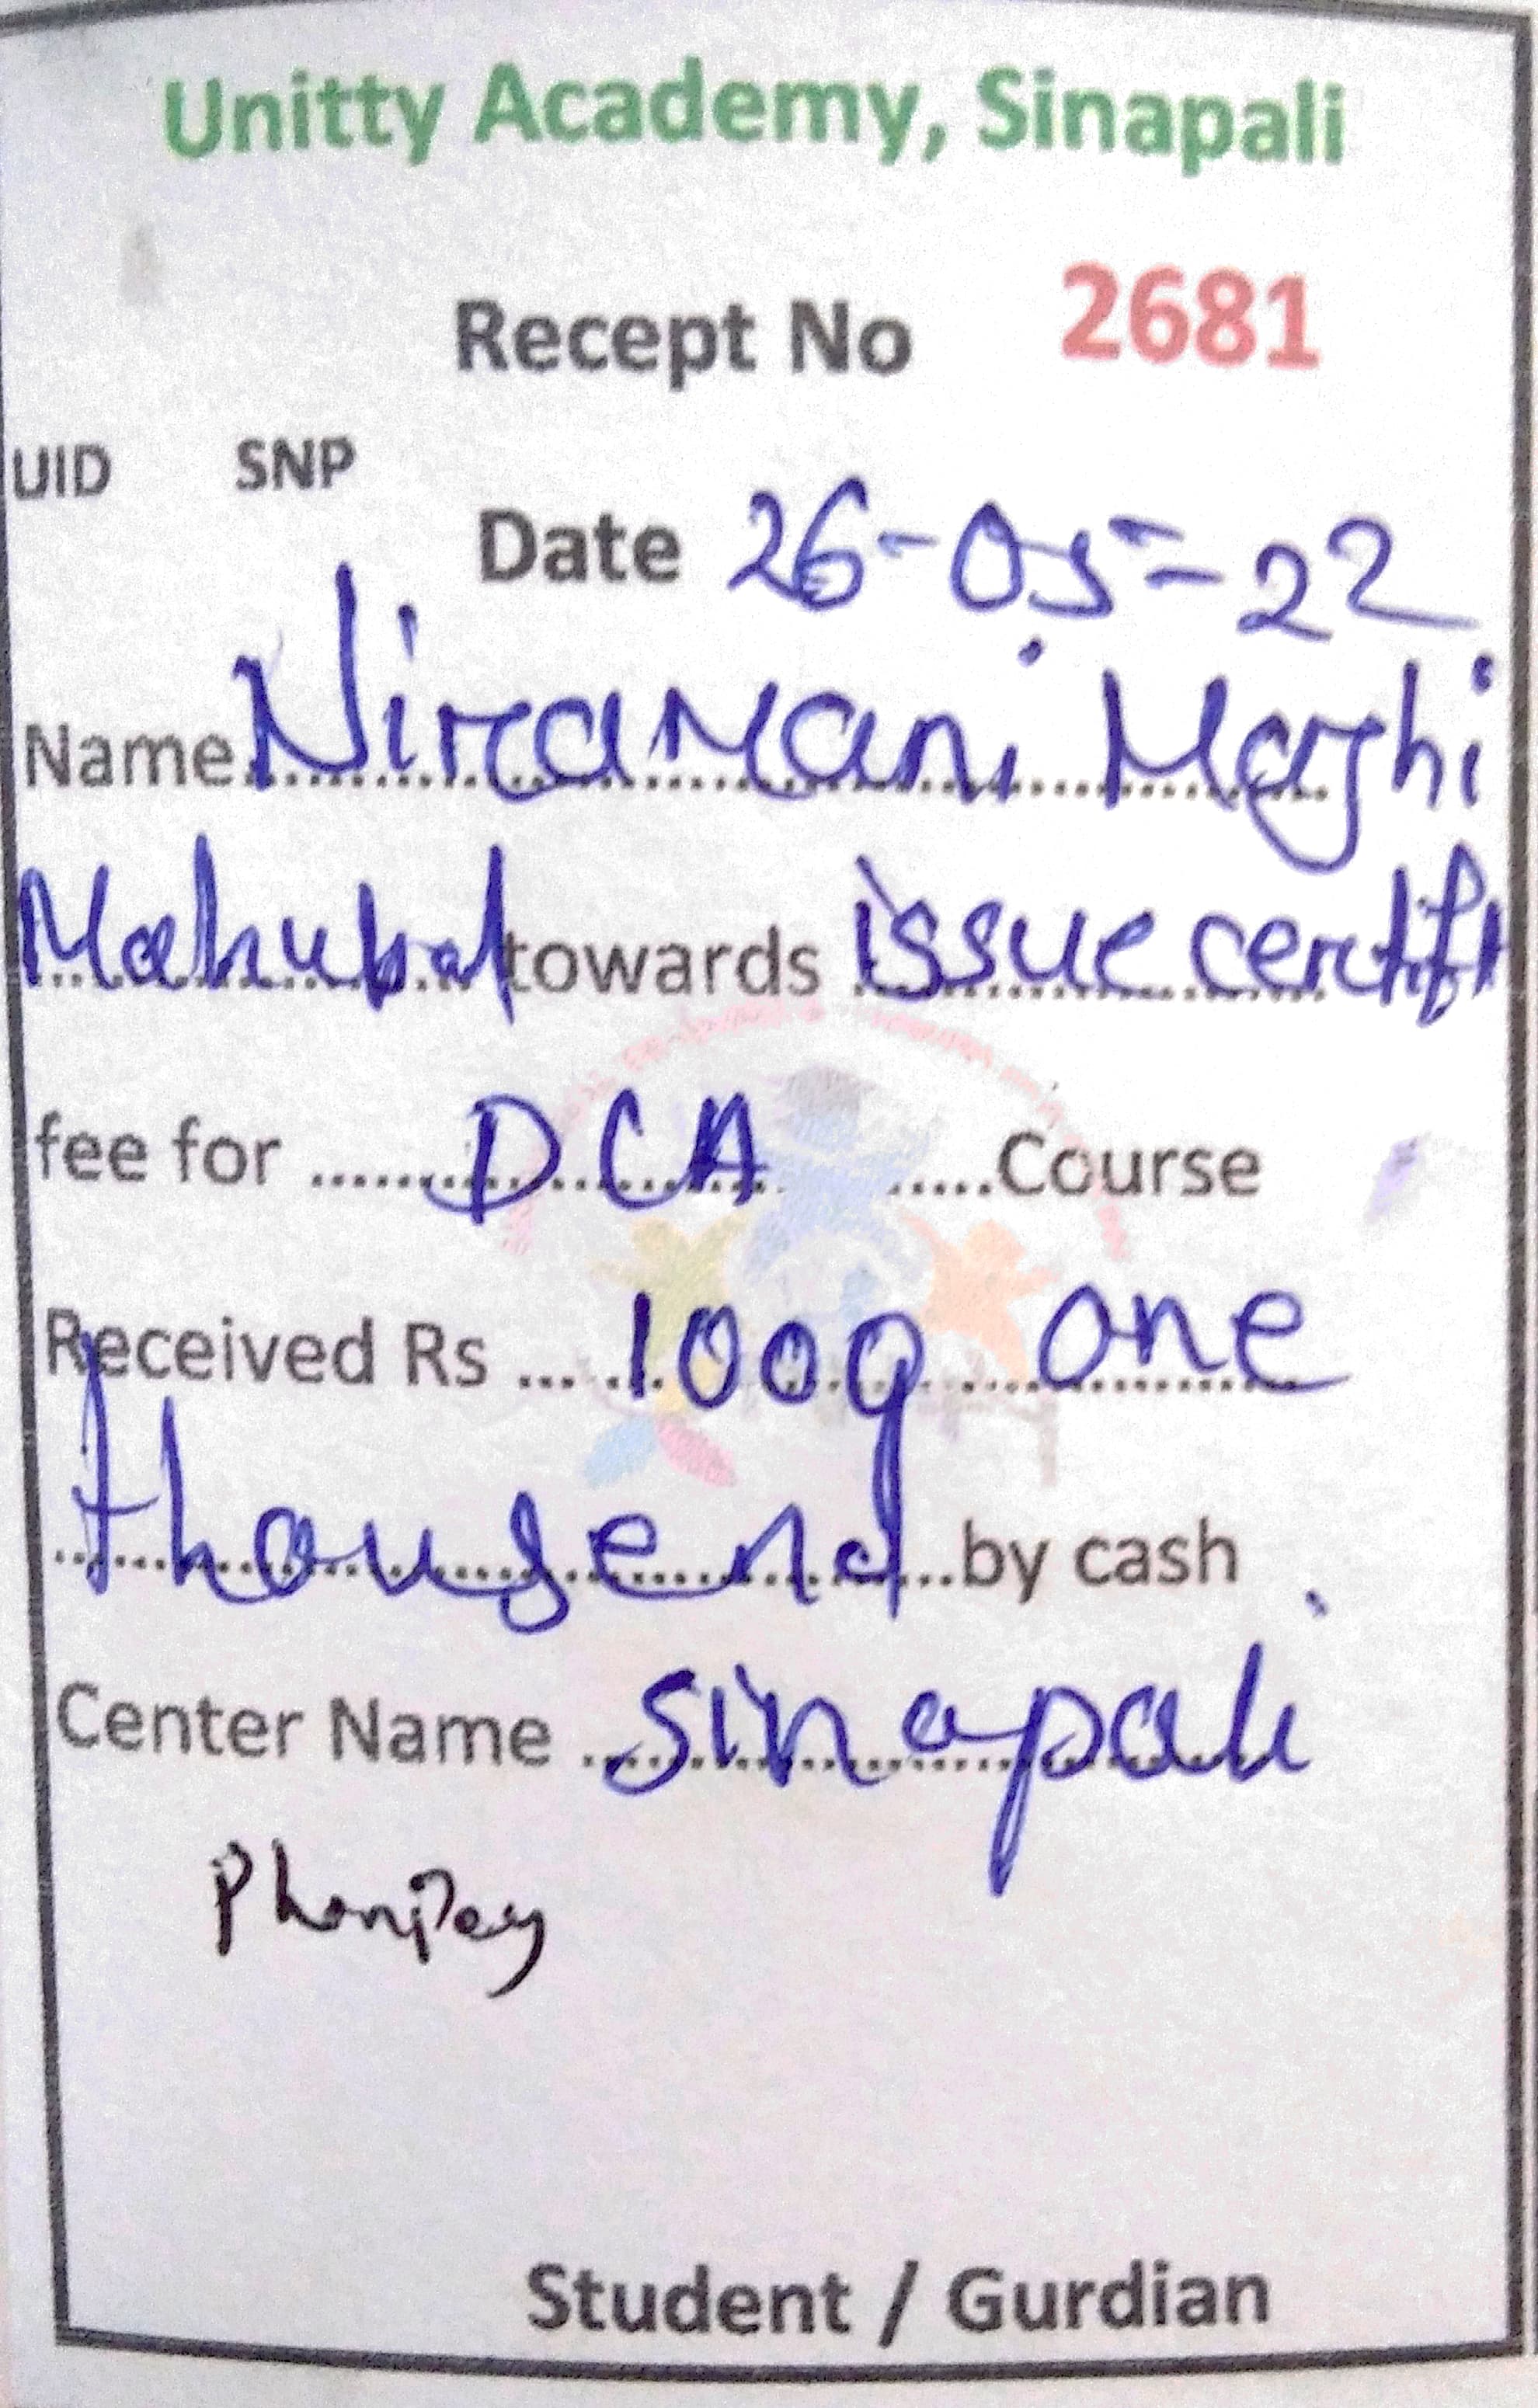 Unitty Academy, Sinapali
Recept No 2681
UID SNP
Date 26-05-22
Name Niramani Majhi
towards issue certifi
fee for DCA Course
Received Rs 1000 one
thousend by cash
Center Name sinapali
PhonPay
Student / Gurdian